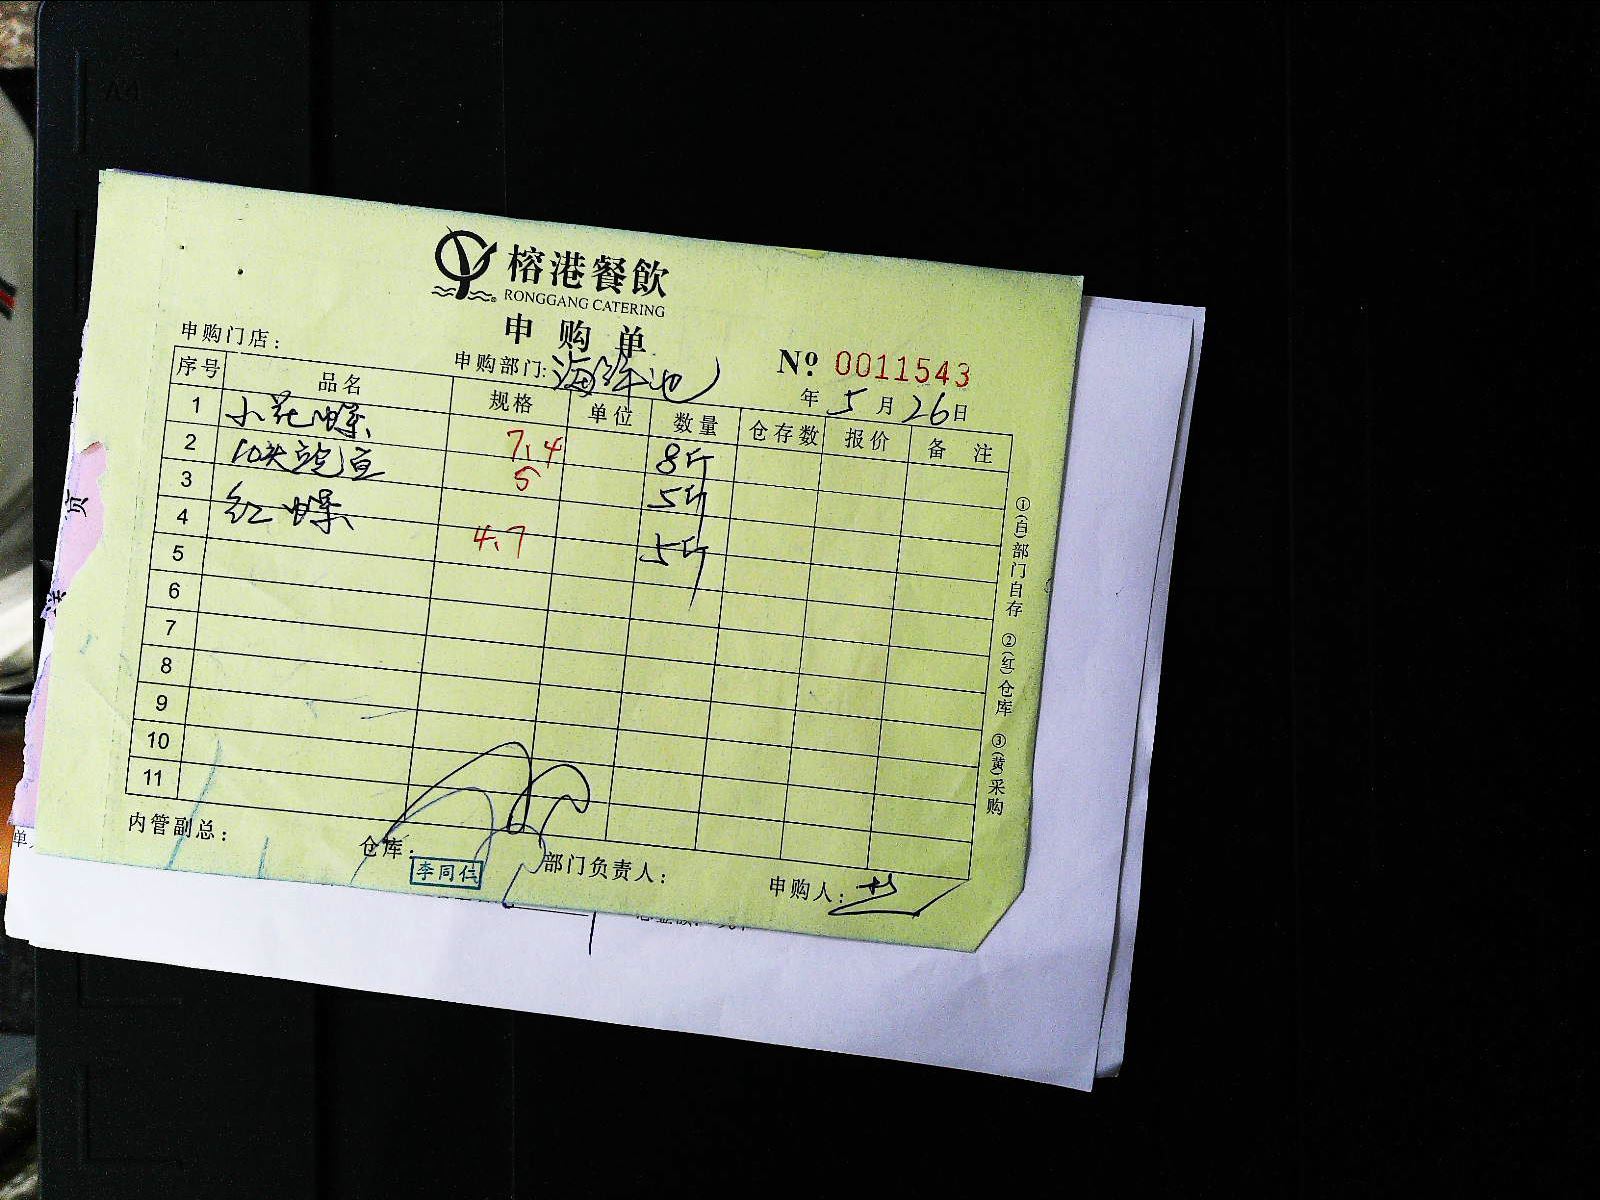 榕港餐飲
RONGGANG CATERING
申购单
申购门店：
申购部门：海鲜池
№ 0011543
年 5 月 26 日
序号 品名 规格 单位 数量 仓存数 报价 备注
1 小花螺 7.4 8斤
2 10头鲍鱼 5 5斤
3 红螺 4.7 5斤
4
5
6
7
8
9
10
11
①(白)部门自存 ②(红)仓库 ③(黄)采购
内管副总：
仓库：
李同仁
部门负责人：
申购人：
页
单